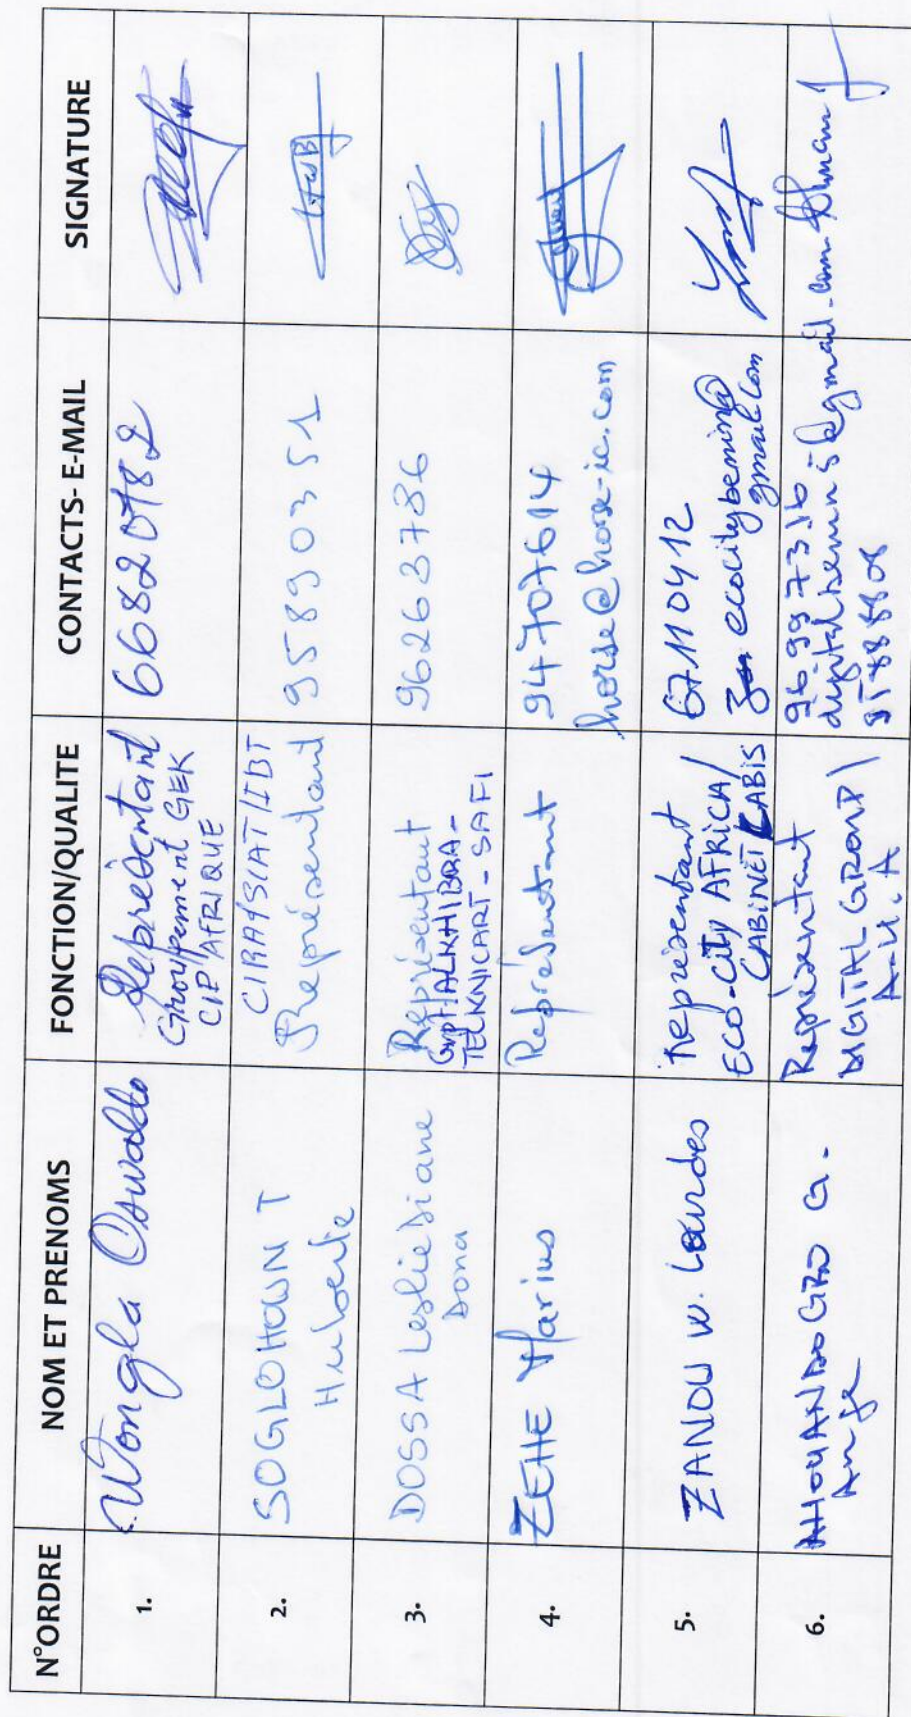 N°ORDRE NOM ET PRENOMS FONCTION/QUALITE CONTACTS- E-MAIL SIGNATURE
1. Wongla Oswaldo
Représentant
Groupement GEK
CIP AFRIQUE
66820782
2. SOGLOHOUN T
Huberte
CIRA/SIAT/IBT
Représentant
95890351
3. DOSSA Leslie Diane
Dona
Représentant
Gvpt ALKHIBRA-
TEKNICART-SAFI
96263786
4. ZEHE Marius
Représentant
94707614
horse@horse-ic.com
5. ZANOU W. Lourdes
représentant
ECO-City AFRICA/
CABINET CABIS
67110412
ecocitybenin@
gmail.com
6. AHOUANDOGBO G.
Ange
Représentant
DIGITAL GROUP/
A.H.A
96997316